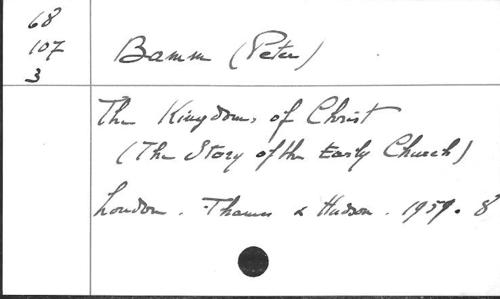 68
107
3
Bamm (Peter)
The Kingdoms of Christ
(The Story of the Early Church)
London. Thames & Hudson. 1959. 8